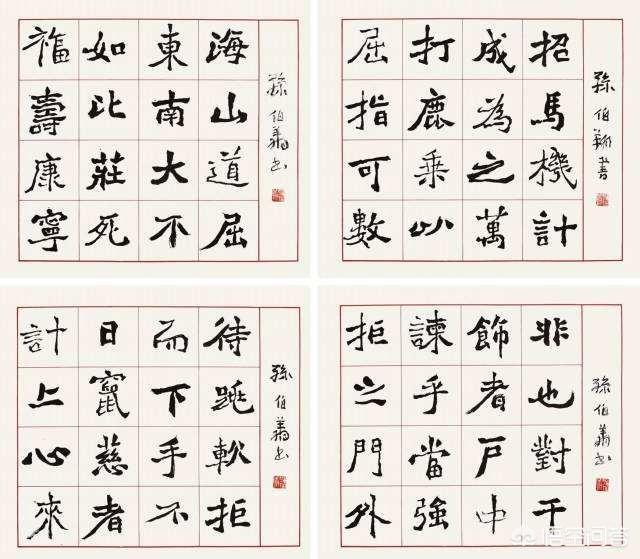 海山道屈
東南大不
如比莊死
福壽康寧
孫伯翔書
招馬機計
成為之萬
打鹿乘以
屈指可數
孫伯翔書
待跳軟拒
而下手不
日竄慈者
計上心來
孫伯翔書
非也對干
飾者戶中
諫乎當強
拒之門外
孫伯翔書
悟空问答